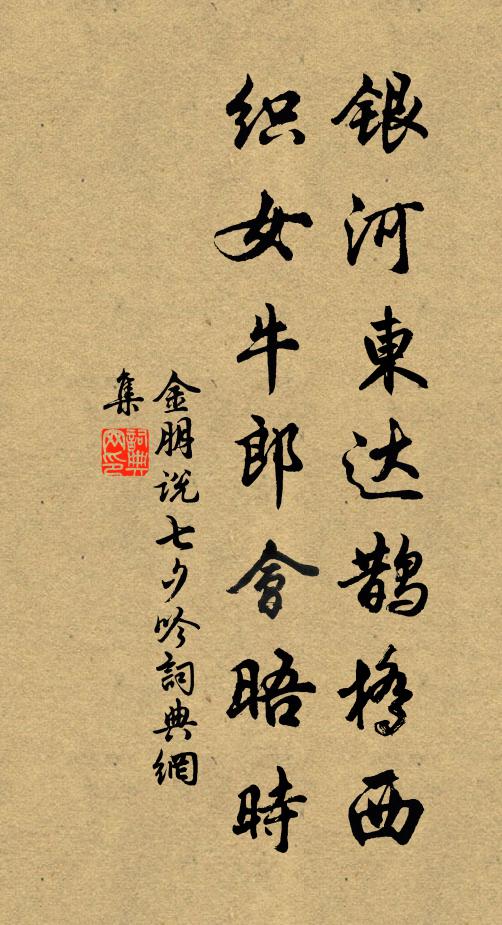 银河東达鹊橋西
织女牛郎會晤時
金朋说七夕吟詞典網
集
詞典
网印